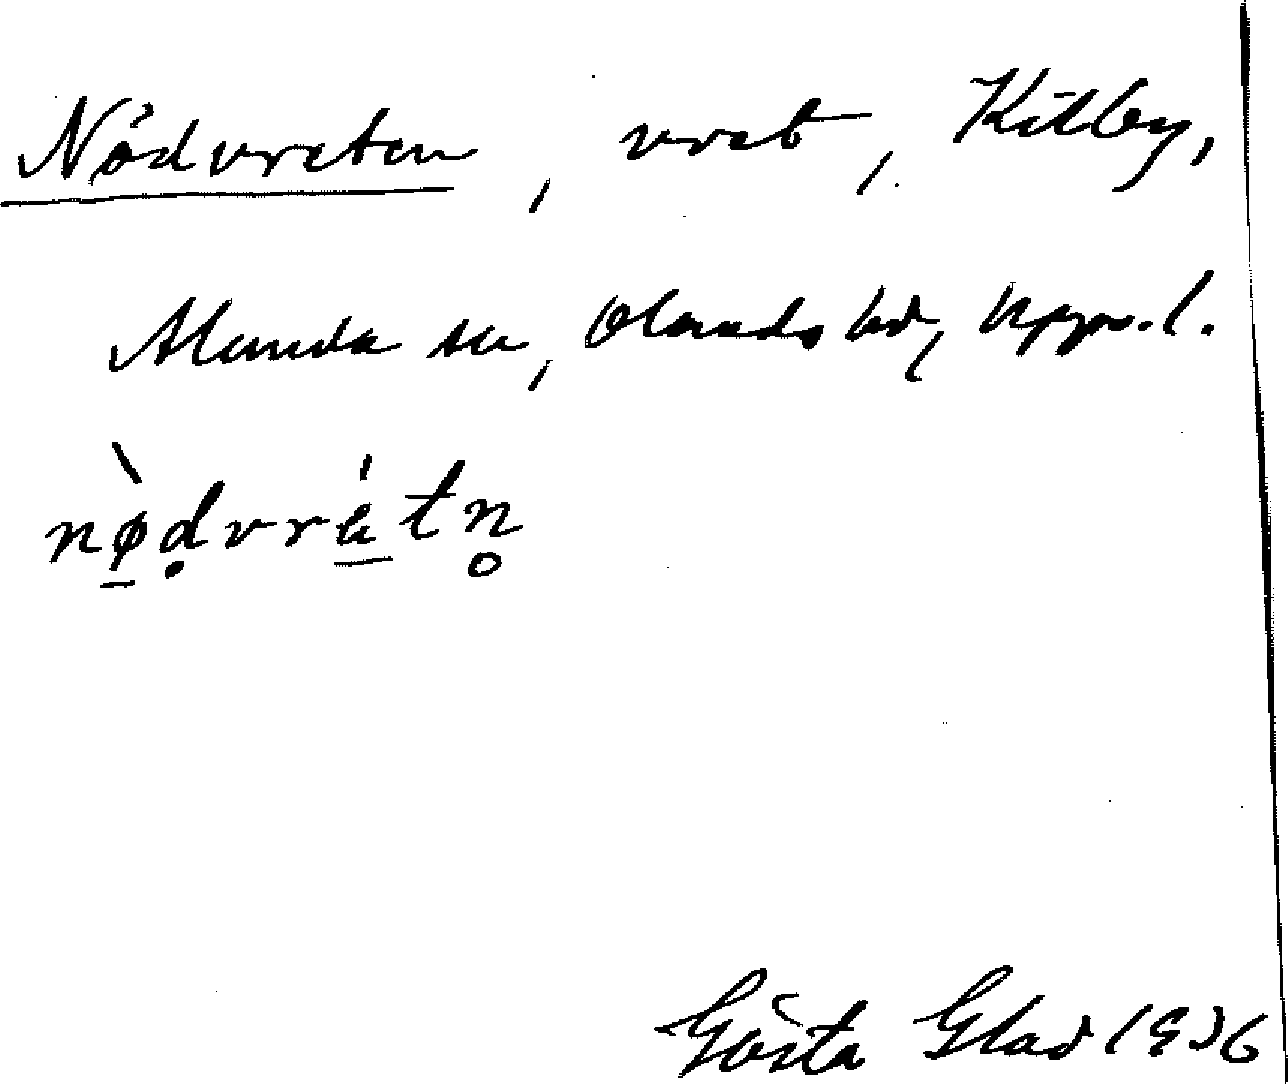 Nödvreten, vret, Kilby,
Alunda sn, Olands hd, Upps. l.
nø̠̀ḍvrä̠́tn̥
Gösta Glad 1936